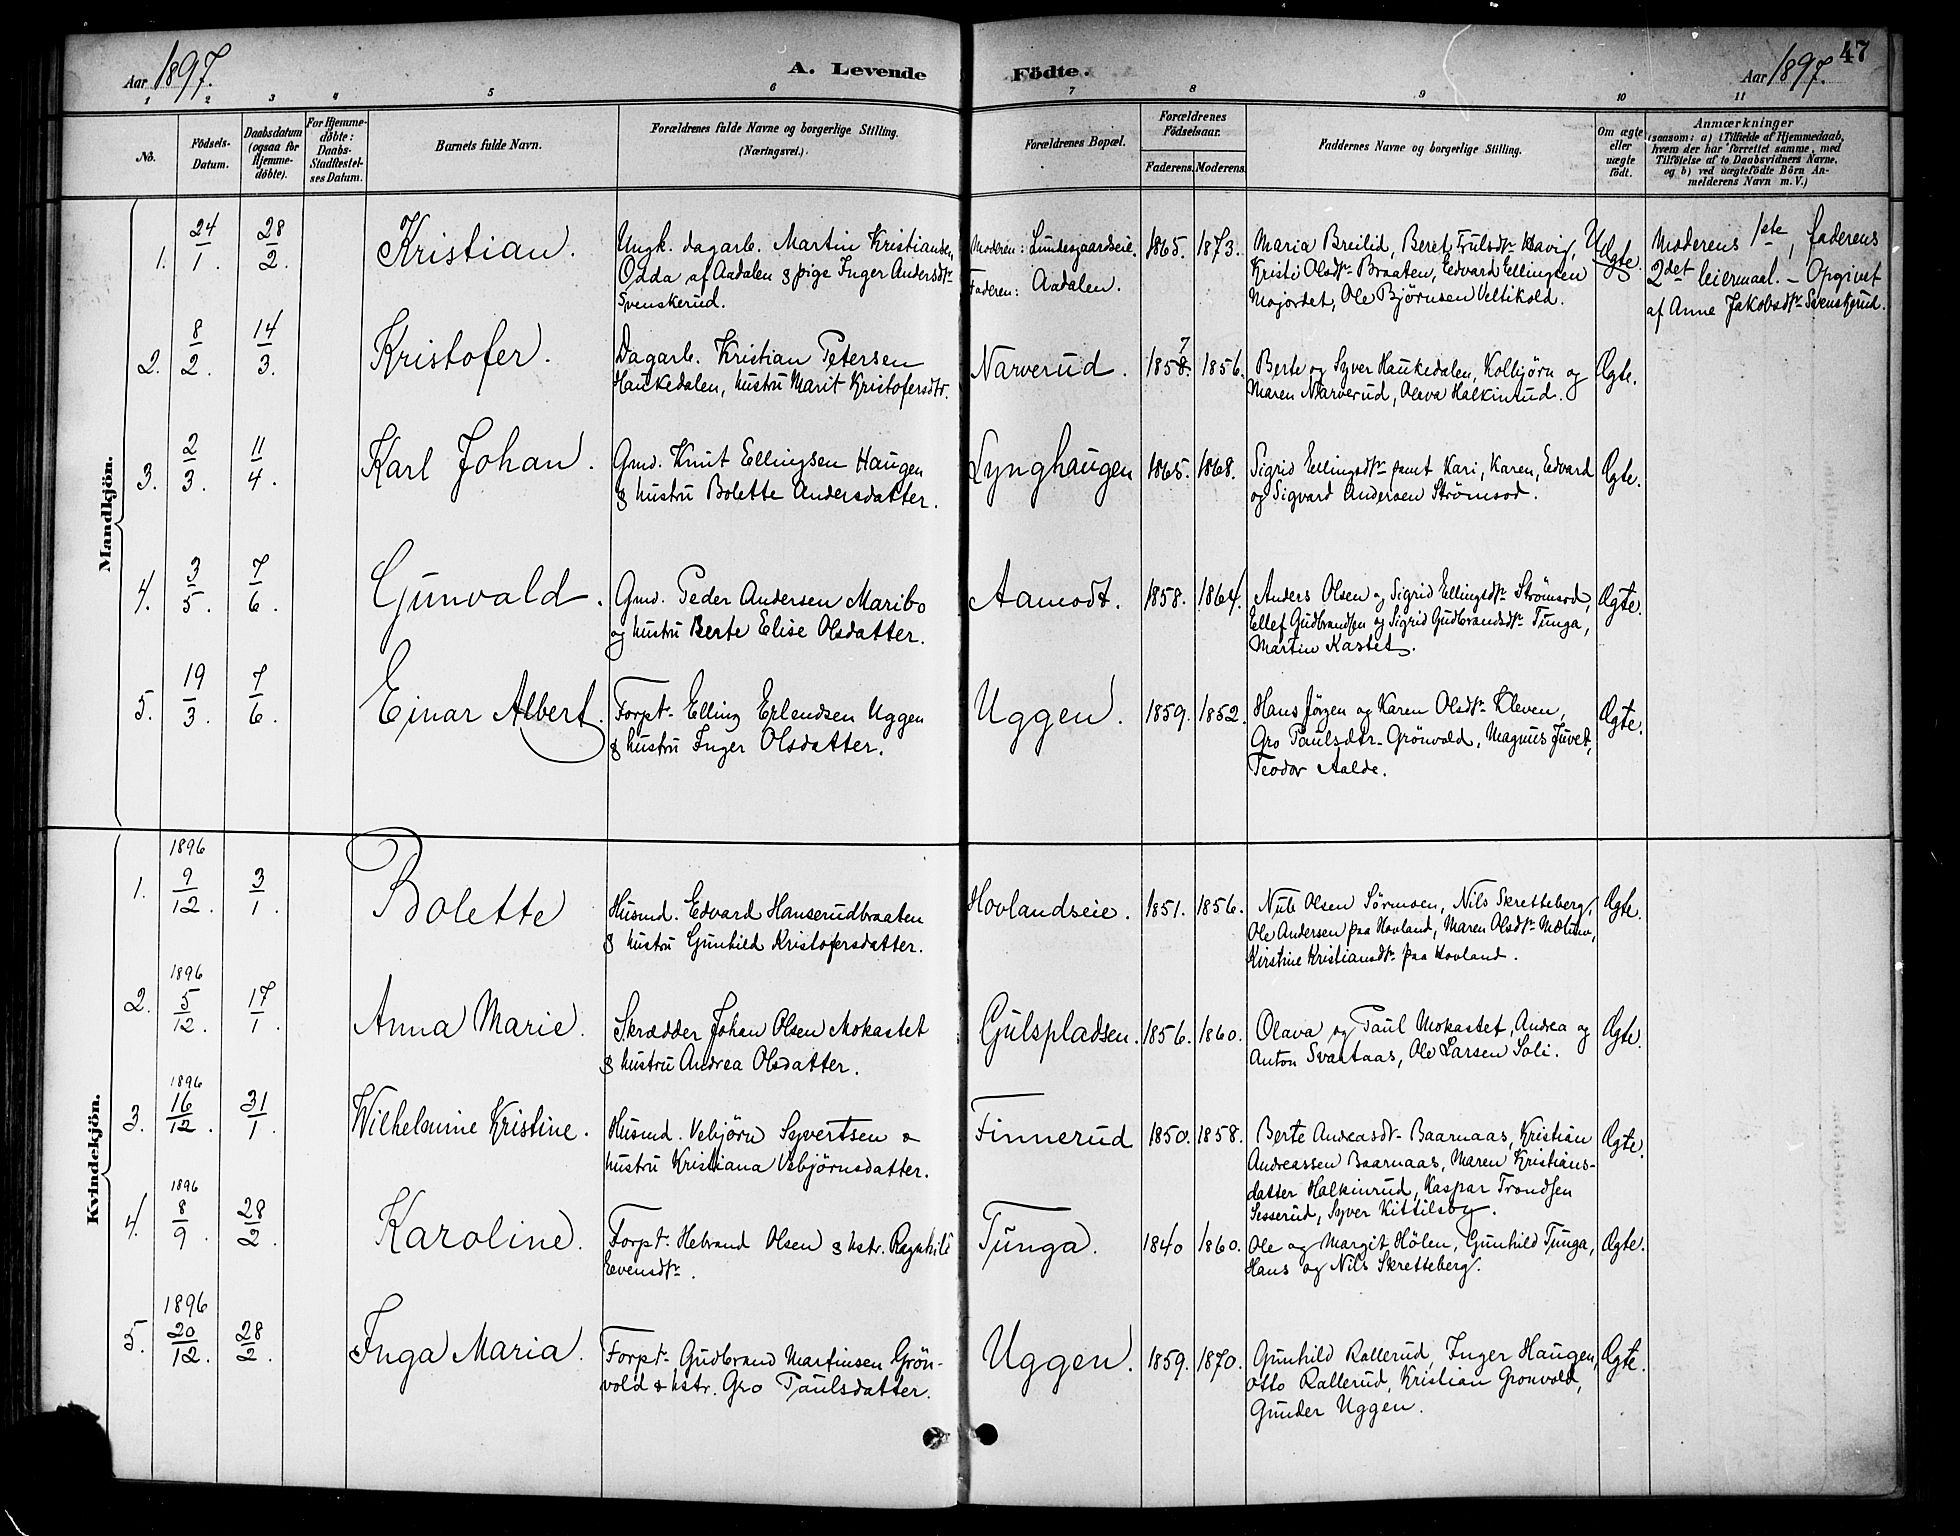 Aar 1897.
A. Levende Födte.
Aar 1897.
47
1 2 3 4 5 6 7 8 9 10 11
No.
Födsels-Datum.
Daabsdatum (ogsaa for Hjemme-döbte).
For Hjemme-döbte: Daabs-Stadfæstel-ses Datum.
Barnets fulde Navn.
Forældrenes fulde Navne og borgerlige Stilling. (Næringsvei.)
Forældrenes Bopæl.
Forældrenes Födselsaar.
Faderens. Moderens.
Faddernes Navne og borgerlige Stilling.
Om ægte eller uægte født.
Anmærkninger
(saasom: a) i Tilfælde af Hjemmedaab,
hvem der har forrettet samme, med
Tilföielse af to Daabsvidners Navne,
og b) ved uægtefödte Börn An-
melderens Navn m. V.)
Mandkjön.
1. 24/1. 28/2. Kristian.
Ungk. dagarb. Martin Kristiansen
Odda af Aadalen & pige Inger Andersdtr
Svenskerud.
Moderen: Lundesgaardseie.
Faderen: Aadalen.
1865. 1873.
Maria Breilid, Beret Trulsdtr Havig,
Kristi Olsdtr Braaten, Edvard Ellingsen
Mojordet, Ole Björnsen Veltikold.
Uægte.
Moderens 1ste, faderens
2det leiermaal. – Opgivet
af Anne Jakobsdtr Svenskerud.
2. 8/2. 14/3. Kristofer.
Dagarb. Kristian Petersen
Haukedalen, hustru Marit Kristofersdtr.
Narverud.
18587. 1856.
Berte og Syver Haukedalen, Kolbjörn og
Maren Narverud, Olava Halkinrud.
Ægte.
3. 2/3. 11/4. Karl Johan.
Gmd. Knut Ellingsen Haugen
& hustru Bolette Andersdatter.
Lynghaugen
1865. 1868.
Sigrid Ellingsdtr samt Kari, Karen, Edvard
og Sigvard Andersen Strömsod.
Ægte.
4. 3/5. 7/6. Gunvald.
Gmd. Peder Andersen Maribo
og hustru Berte Elise Olsdatter.
Aamodt.
1858. 1864.
Anders Olsen og Sigrid Ellingsdtr Strömsod,
Ellef Gudbrandsen og Sigrid Gudbrandsdtr Tunga,
Martin Kastet.
Ægte.
5. 19/3. 7/6. Einar Albert.
Forpt. Elling Erlendsen Uggen
& hustru Inger Olsdatter.
Uggen.
1859. 1852.
Hans Jörgen og Karen Olsdtr Kleven,
Gro Paulsdtr Grönvold, Magnus Juvet,
Teodor Aalde.
Ægte.
Kvindekjön.
1. 1896 9/12. 3/1. Bolette
Husmd. Edvard Hanserudbraaten
& hustru Gunhild Kristofersdatter.
Hovlandseie.
1851. 1856.
Olsen Sörmoen, Nils Skretteberg,
Ole Andersen paa Hovland, Maren Olsdtr Mælum,
Kirstine Kristiansdtr paa Hovland.
Ægte.
2. 1896 5/12. 17/1. Anna Marie.
Skrædder Johan Olsen Mokastet
& hustru Andrea Olsdatter.
Gulspladsen.
1856. 1860.
Olava og Paul Mokastet, Andrea og
Anton Svartaas, Ole Larsen Soli.
Ægte.
3. 1896 16/12. 31/1. Wilhelmine Kristine.
Husmd. Vebjörn Syvertsen &
hustru Kristiana Vebjörnsdatter.
Finnerud
1850. 1858.
Berte Andreasdtr Baarnaas, Kristian
Andreassen Baarnaas, Maren Kristians-
datter Halkinrud, Kaspar Trondsen
Sesserud, Syver Kittilsby.
Ægte.
4. 1896 8/9. 28/2. Karoline.
Forpt. Hebrand Olsen & hstr. Ragnhild
Evensdtr.
Tunga.
1840 1860.
Ole og Margit Hölen, Gunhild Tunga,
Hans og Nils Skretteberg.
Ægte.
5. 1896 20/12. 28/2. Inga Maria.
Forpt. Gudbrand Martinsen Grön-
vold & hstr. Gro Paulsdatter.
Uggen.
1859. 1870.
Gunhild Rallerud, Inger Haugen,
Otto Rallerud, Kristian Gronvold,
Gunder Uggen.
Ægte.